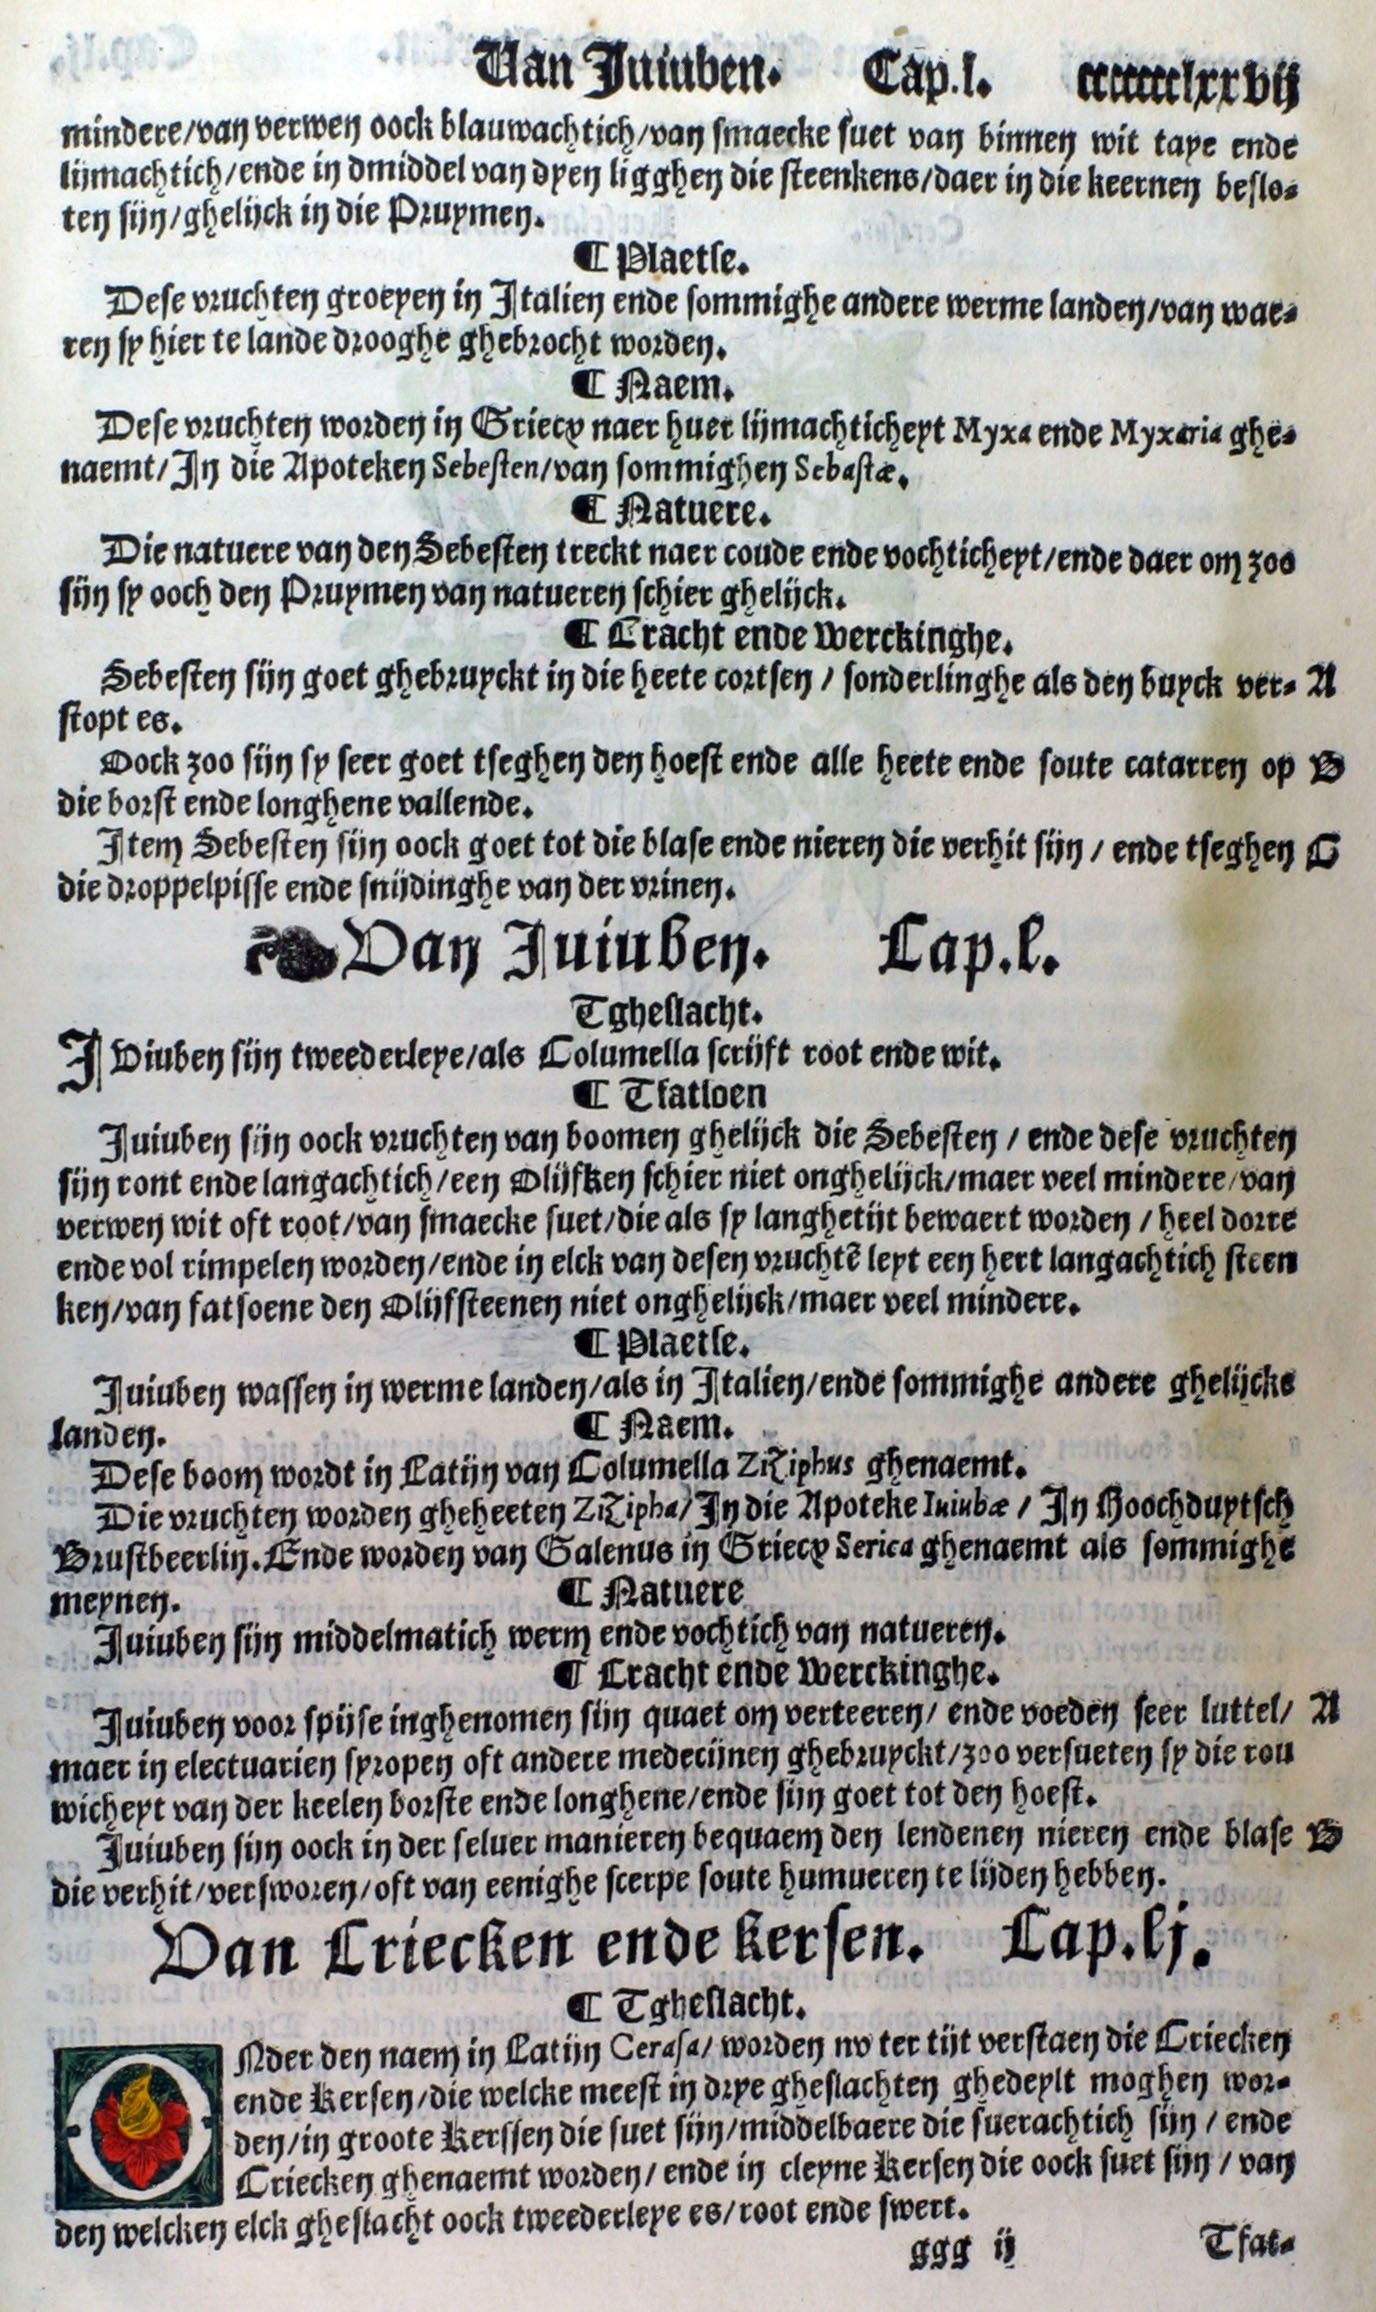 Van Juiuben. Cap.l. ccccccclxxvij
mindere/van verwen oock blauwachtich/van smaecke suet van binnen wit taye ende
lijmachtich/ende in dmiddel van dyen ligghen die steenkens/daer in die keernen beslo-
ten sijn/ghelijck in die Pruymen.
¶ Plaetse.
Dese vruchten groeyen in Italien ende sommighe andere werme landen/van wae-
ren sy hier te lande drooghe ghebrocht worden.
¶ Naem.
Dese vruchten worden in Griecx naer huer lijmachticheyt Myxa ende Myxaria ghe-
naemt/In die Apoteken Sebesten/van sommighen Sebastæ.
¶ Natuere.
Die natuere van den Sebesten treckt naer coude ende vochticheyt/ende daer om zoo
sijn sy ooch den Pruymen van natueren schier ghelijck.
¶ Cracht ende Werckinghe.
Sebesten sijn goet ghebruyckt in die heete cortsen / sonderlinghe als den buyck ver- A
stopt es.
Oock zoo sijn sy seer goet tseghen den hoest ende alle heete ende soute catarren op B
die borst ende longhene vallende.
Item Sebesten sijn oock goet tot die blase ende nieren die verhit sijn / ende tseghen C
die droppelpisse ende snijdinghe van der vrinen.
Van Juiuben. Cap.l.
Tgheslacht.
IViuben sijn tweederleye/als Columella scrijft root ende wit.
¶ Tfatsoen
Juiuben sijn oock vruchten van boomen ghelijck die Sebesten / ende dese vruchten
sijn ront ende langachtich/een Olijfken schier niet onghelijck/maer veel mindere/van
verwen wit oft root/van smaecke suet/die als sy langhetijt bewaert worden / heel dorre
ende vol rimpelen worden/ende in elck van desen vruchtẽ leyt een hert langachtich steen
ken/van fatsoene den Olijfsteenen niet onghelijck/maer veel mindere.
¶ Plaetse.
Juiuben wassen in werme landen/als in Italien/ende sommighe andere ghelijcke
landen. ¶ Naem.
Dese boom wordt in Latijn van Columella Ziziphus ghenaemt.
Die vruchten worden gheheeten Ziziphа/In die Apoteke Iuiubæ / In Hoochduytsch
Brustbeerlin. Ende worden van Galenus in Griecx Serica ghenaemt als sommighe
meynen. ¶ Natuere
Juiuben sijn middelmatich werm ende vochtich van natueren.
¶ Cracht ende Werckinghe.
Juiuben voor spijse inghenomen sijn quaet om verteeren/ ende voeden seer luttel/ A
maer in electuarien syropen oft andere medecijnen ghebruyckt/zoo versueten sy die rou
wicheyt van der keelen borste ende longhene/ende sijn goet tot den hoest.
Juiuben sijn oock in der seluer manieren bequaem den lendenen nieren ende blase B
die verhit/versworen/oft van eenighe scerpe soute humueren te lijden hebben.
Van Criecken ende kersen. Cap.lj.
¶ Tgheslacht.
ONder den naem in Latijn Cerasa/ worden nv ter tijt verstaen die Criecken
ende Kersen/die welcke meest in drye gheslachten ghedeylt moghen wor-
den/in groote Kerssen die suet sijn/middelbaere die suerachtich sijn / ende
Criecken ghenaemt worden/ ende in cleyne Kersen die oock suet sijn / van
den welcken elck gheslacht oock tweederleye es/root ende swert.
ggg ij Tfat-